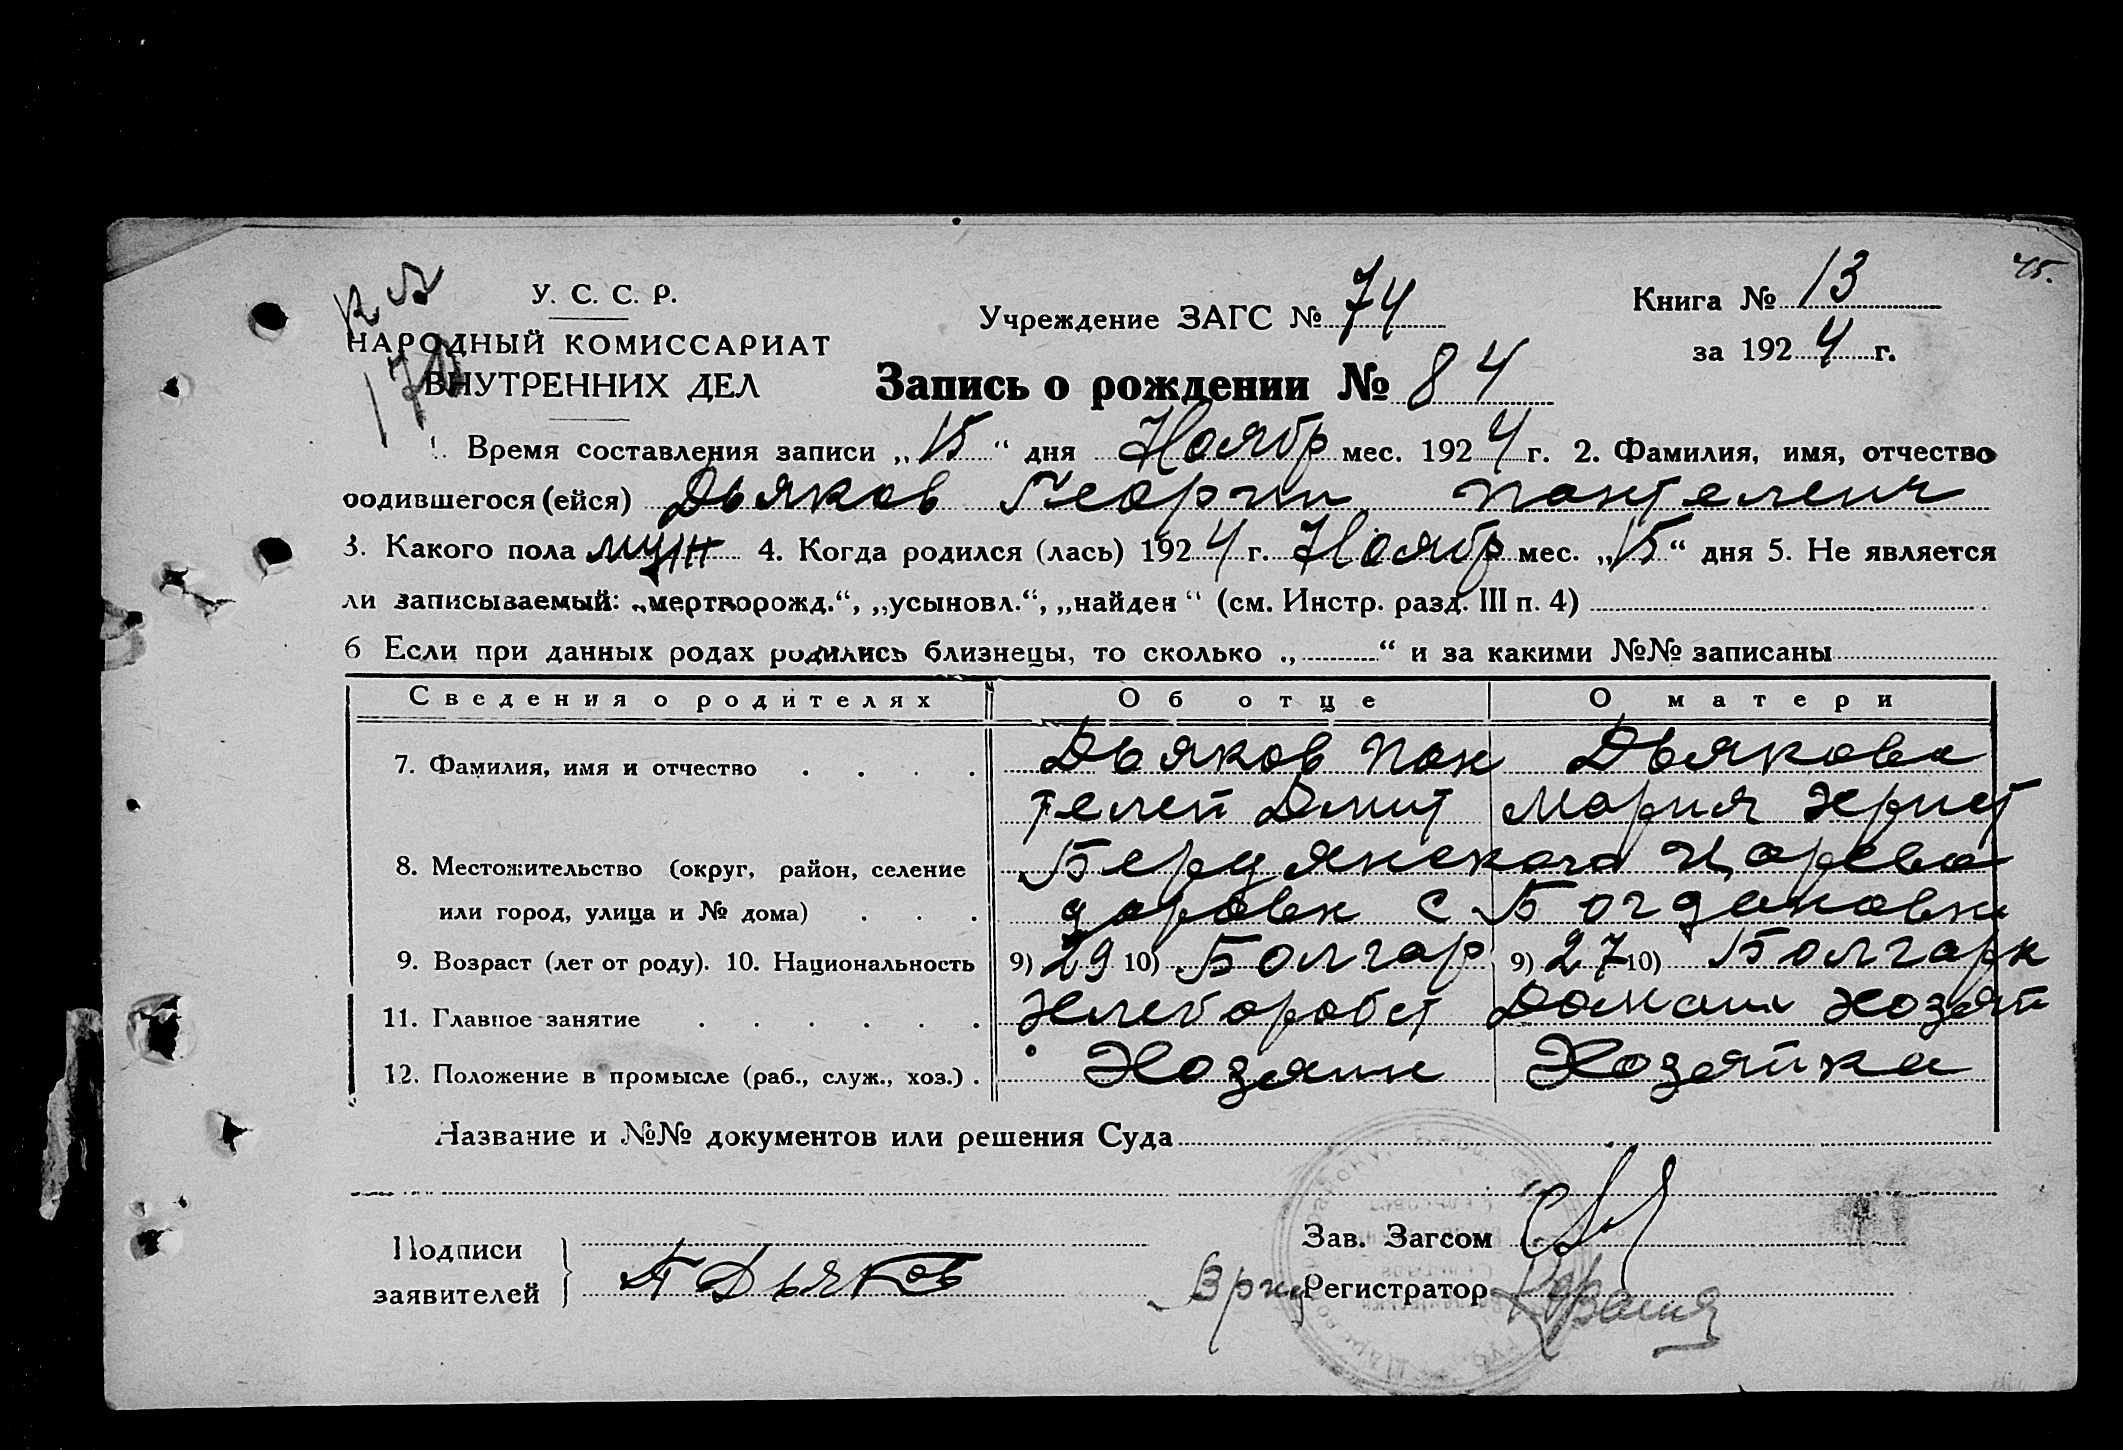 45.
У. С. С. Р.
НАРОДНЫЙ КОМИССАРИАТ
ВНУТРЕННИХ ДЕЛ
Учреждение ЗАГС № 74
Книга № 13
за 1924 г.
Запись о рождении № 84
1. Время составления записи „15“ дня Ноябр мес. 1924 г. 2. Фамилия, имя, отчество
родившегося (ейся) Дьяков Георгии Пантелеич
3. Какого пола муж 4. Когда родился (лась) 1924 г. Ноябр мес. „15“ дня 5. Не является
ли записываемый: „мертворожд.“, „усыновл.“, „найден“ (см. Инстр. разд. III п. 4)
6 Если при данных родах родились близнецы, то сколько „ “ и за какими №№ записаны
Сведения о родителях Об отце О матери
7. Фамилия, имя и отчество Дьяков Пан Дьякова
телей Дмит Мария Христ
8. Местожительство (округ, район, селение Бердянского Царево
или город, улица и № дома) доровк с Богдановки
9. Возраст (лет от роду). 10. Национальность 9) 29 10) Болгар 9) 27 10) Болгарк
11. Главное занятие Хлеборобст Домаш хозяй
12. Положение в промысле (раб., служ., хоз.) Хозяин Хозяйка
Название и №№ документов или решения Суда
Подписи
заявителей
П Дьяков
Зав. Загсом
Врид Регистратор